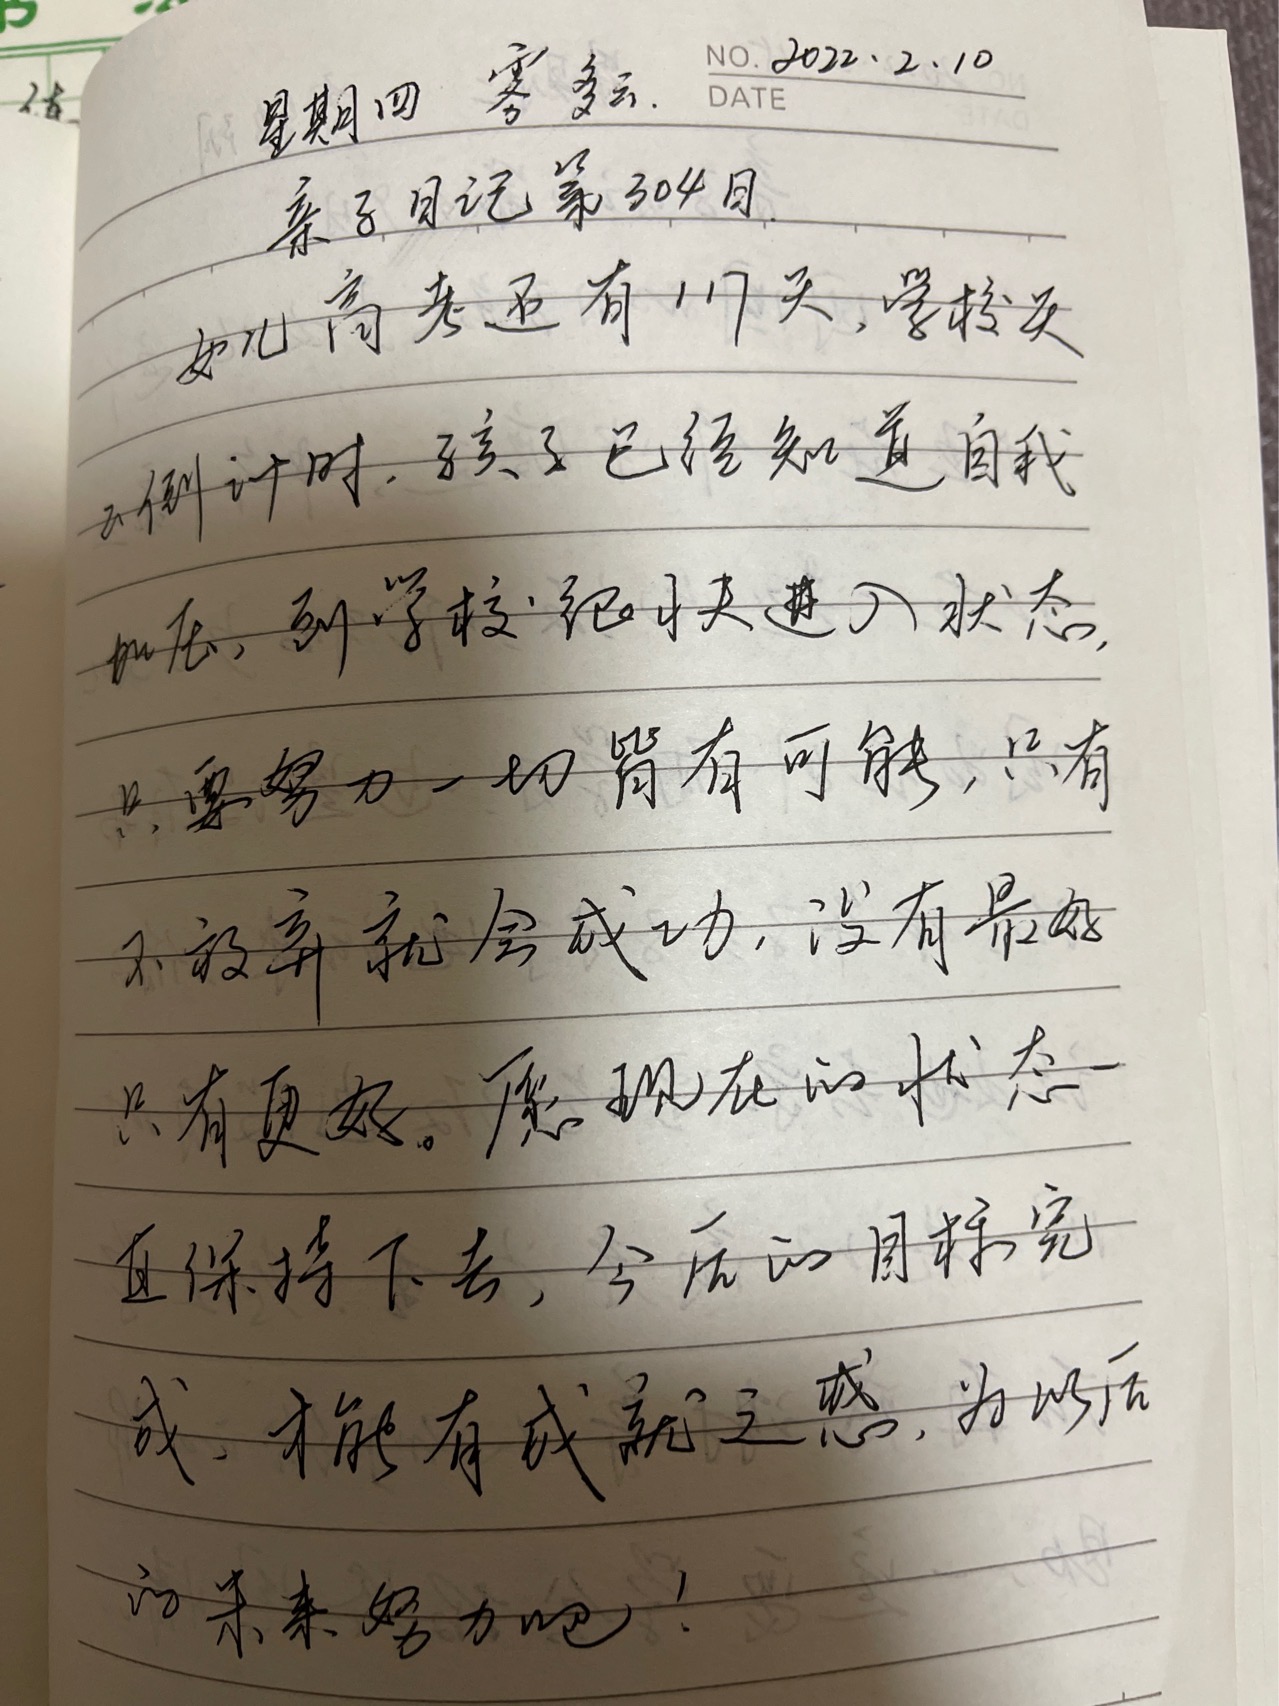 NO. 2022.2.10
DATE
星期四 雾多云.
亲子日记第304日.
女儿高考还有117天,学校天
天倒计时.孩子已经知道自我
加压,到学校很快进入状态,
只要努力一切皆有可能,只有
不放弃就会成功,没有最好
只有更好。愿现在的状态一
直保持下去,今后的目标完
成,才能有成就之感,为以后
的未来努力吧!